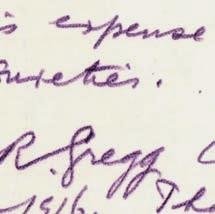 s expense
ueties.
R. Gregg,
1916. Th